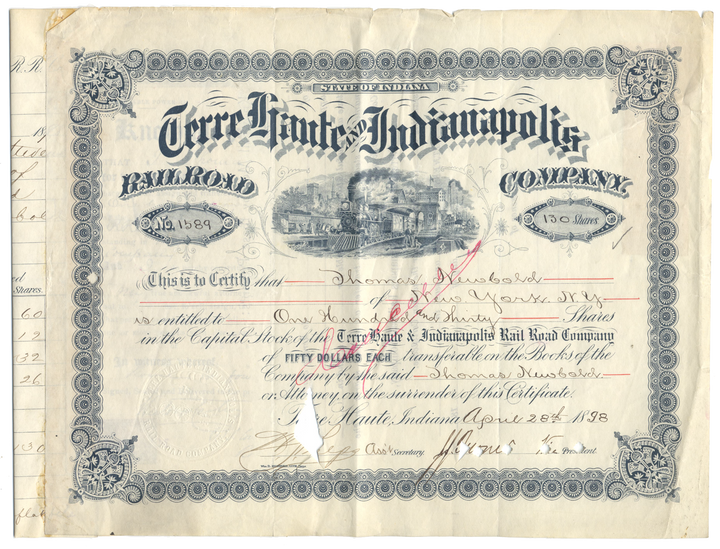 STATE OF INDIANA
Terre Haute AND Indianapolis
RAILROAD COMPANY.
No. 1589
130 Shares
This is to Certify that Thomas Newbold
of New York. N.Y.
is entitled to One Hundred and Thirty Shares
in the Capital Stock of the Terre Haute & Indianapolis Rail Road Company
of FIFTY DOLLARS EACH transferable on the Books of the
Company by the said Thomas Newbold
or Attorney on the surrender of this Certificate.
Terre Haute, Indiana April 28th 1898
Ass't Secretary. Vice President
Cancelled
R.R.
19
of
Shares.
60
12
32
26
130